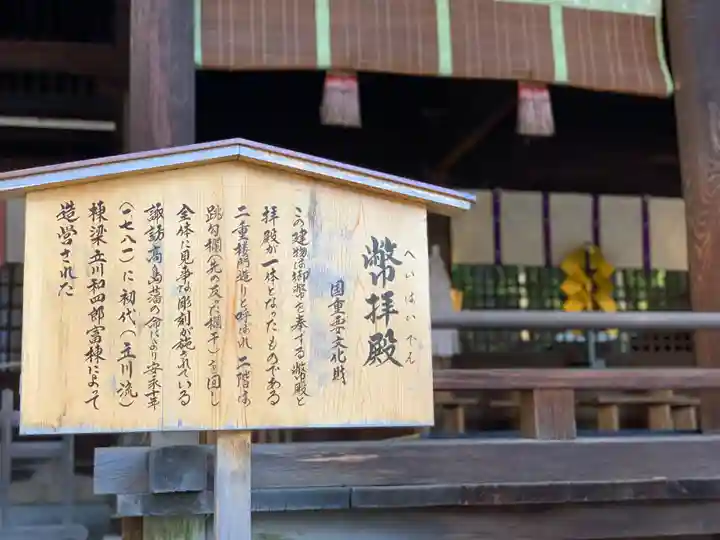 幣拝殿
へいはいでん
国重要文化財
この建物は御幣を奉する幣殿と
拝殿が一体となったものである
二重楼門造りと呼ばれ二階は
跳勾欄(先の反た欄干)を回し
全体に見事な彫刻が施されている
諏訪高島藩の命により安永十年
(一七八一)に初代(立川流)
棟梁立川和四郎富棟によって
造営された